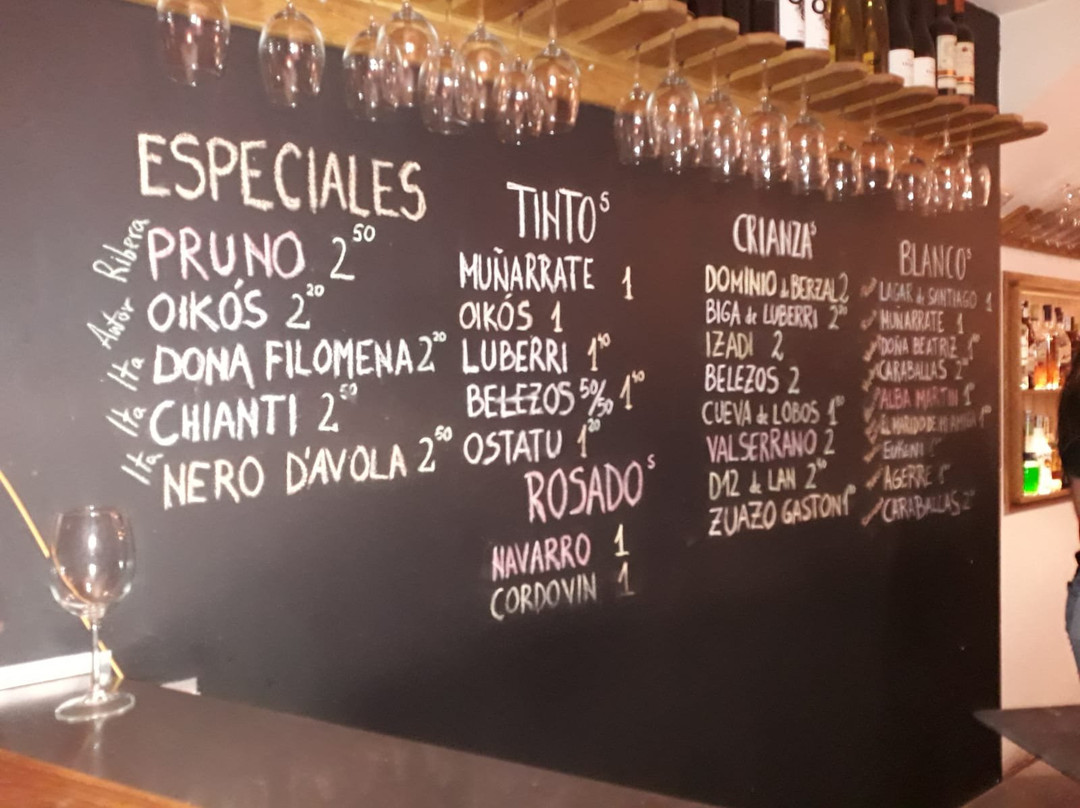 ESPECIALES
Ribera PRUNO 2 50
Autor OIKÓS 2 20
Ita DONA FILOMENA 2 20
Ita CHIANTI 2 50
Ita NERO D'AVOLA 2 50
TINTO S
MUÑARRATE 1
OIKÓS 1
LUBERRI 1 40
BELEZOS 50/50 1 40
OSTATU 1 20
ROSADO S
NAVARRO 1
CORDOVIN 1
CRIANZA S
DOMINIO de BERZAL 2
BIGA de LUBERRI 2
IZADI 2
BELEZOS 2
CUEVA de LOBOS 1
VALSERRANO 2
D12 de LAN 2
ZUAZO GASTON 1
BLANCO S
LAGAR de SANTIAGO 1
MUÑARRATE 1
DOÑA BEATRIZ 1
CARABALLAS 2
ALBA MARTIN 1
EL MARIDO DE MI AMIGA 1
AGERRE 1
CARABALLAS 2